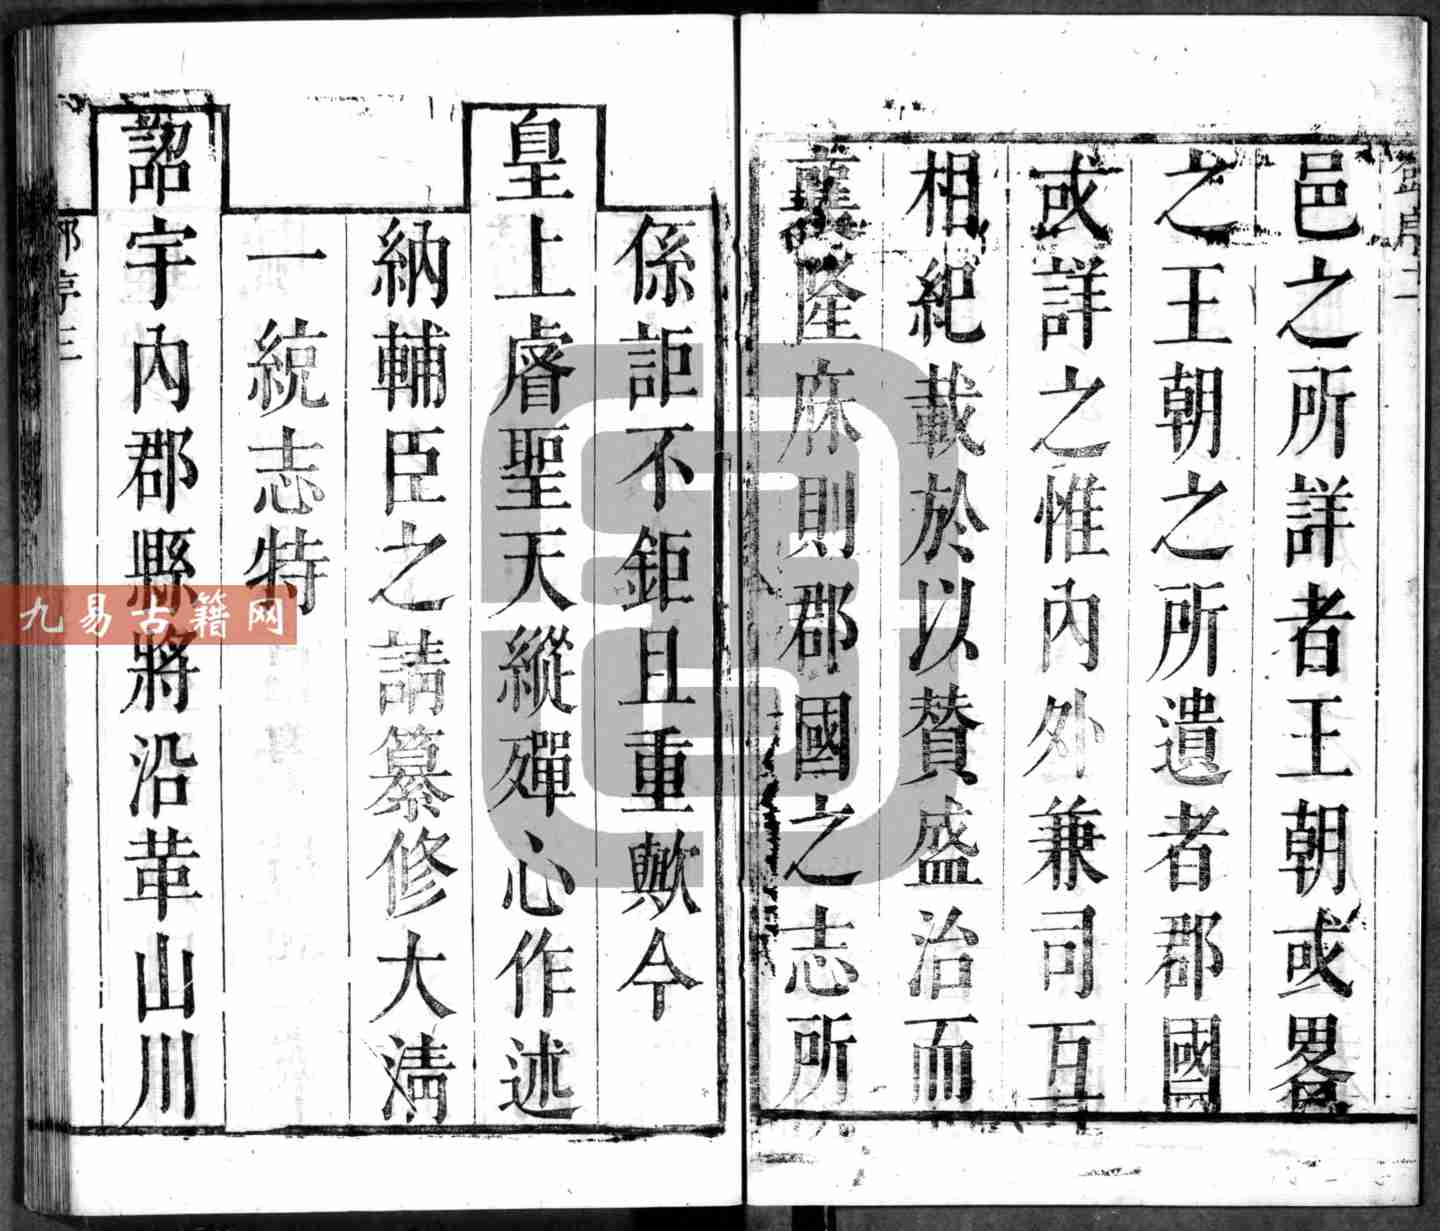 邑之所詳者王朝或畧
之王朝之所遺者郡國
或詳之惟內外兼司互
相紀載於以賛盛治而
襄隆庥則郡國之志所
係詎不鉅且重歟今
皇上睿聖天縱殫心作述
納輔臣之請纂修大清
一統志特
詔宇內郡縣將沿革山川
九易古籍网